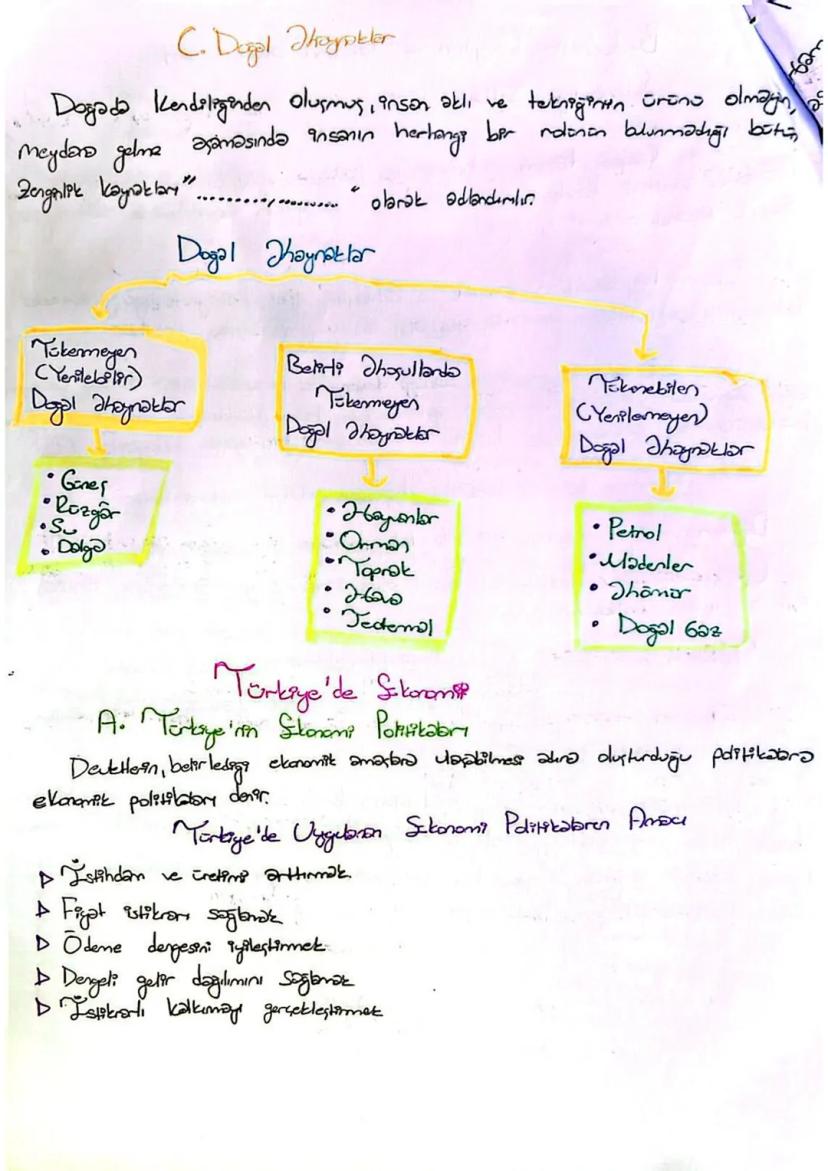 C. Doğal Kaynaklar
Doğada kendiliğinden oluşmuş, insan aklı ve tekniğinin ürünü olmayan,
meydana gelme aşamasında insanın herhangi bir rolünün bulunmadığı bütün
zenginlik kayakları "..............,.........." olarak adlandırılır.
Doğal Kaynaklar
Tükenmeyen
(Yenilebilir)
Doğal Kaynaklar
• Güneş
• Rüzgâr
• Su
• Dalga
Belirli Koşullarda
Tükenmeyen
Doğal Kaynaklar
• Hayvanlar
• Orman
• Toprak
• Hava
• Jeotermal
Tükenebilen
(Yenilemeyen)
Doğal Kaynaklar
• Petrol
• Madenler
• Kömür
• Doğal Gaz
Türkiye'de Ekonomi
A. Türkiye'nin Ekonomi Politikaları
Devletlerin, belirlediği ekonomik amaçlara ulaşabilmesi adına oluşturduğu politikalara
ekonomik politikaları denir.
Türkiye'de Uygulanan Ekonomi Politikaların Amacı
▷ İstihdam ve üretimi arttırmak
▷ Fiyat istikrarı sağlamak
▷ Ödeme dengesini iyileştirmek
▷ Dengeli gelir dağılımını sağlamak
▷ İstikrarlı kalkınmayı gerçekleştirmek